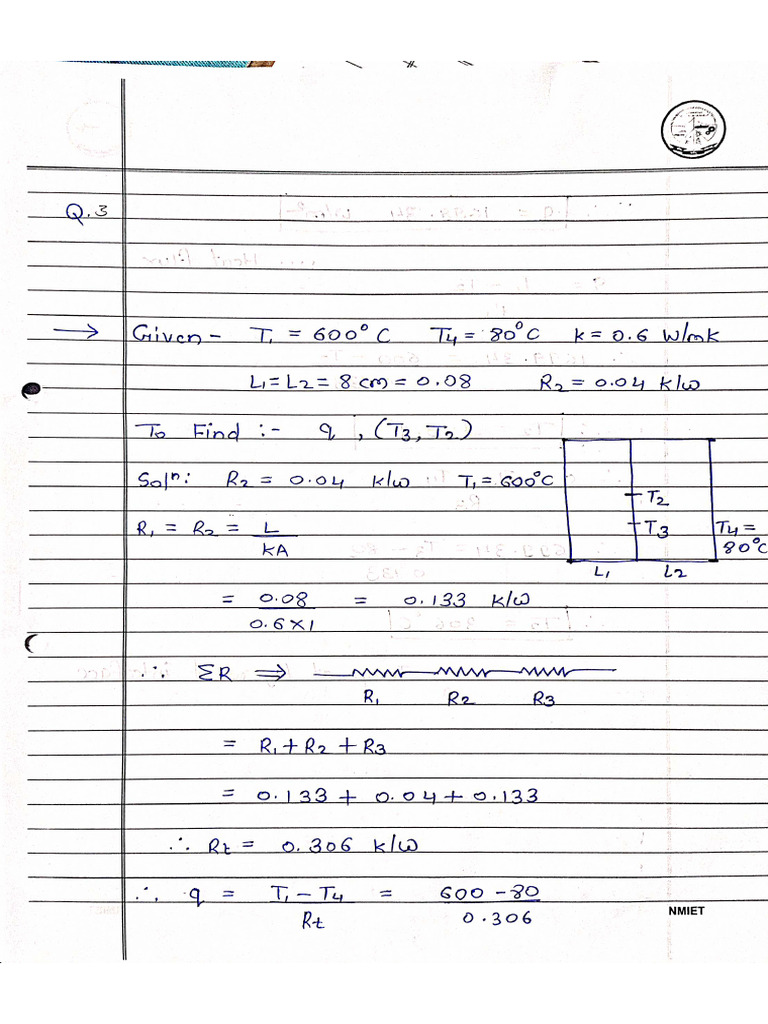 Q.3
→ Given - T₁ = 600°C T4 = 80°C k = 0.6 W/mk
L₁ = L2 = 8 cm = 0.08 R2 = 0.04 k/w
To Find :- q , (T3, T2)
Solⁿ: R2 = 0.04 k/w T₁ = 600°C
T2
R₁ = R2 = L/KA
T3 T4 = 80°C
L₁ L2
= 0.08/0.6×1 = 0.133 k/w
∴ ΣR ⇒
R₁ R2 R3
= R₁ + R2 + R3
= 0.133 + 0.04 + 0.133
∴ Rt = 0.306 k/w
∴ q = T₁ - T4/Rt = 600 - 80/0.306
NMIET